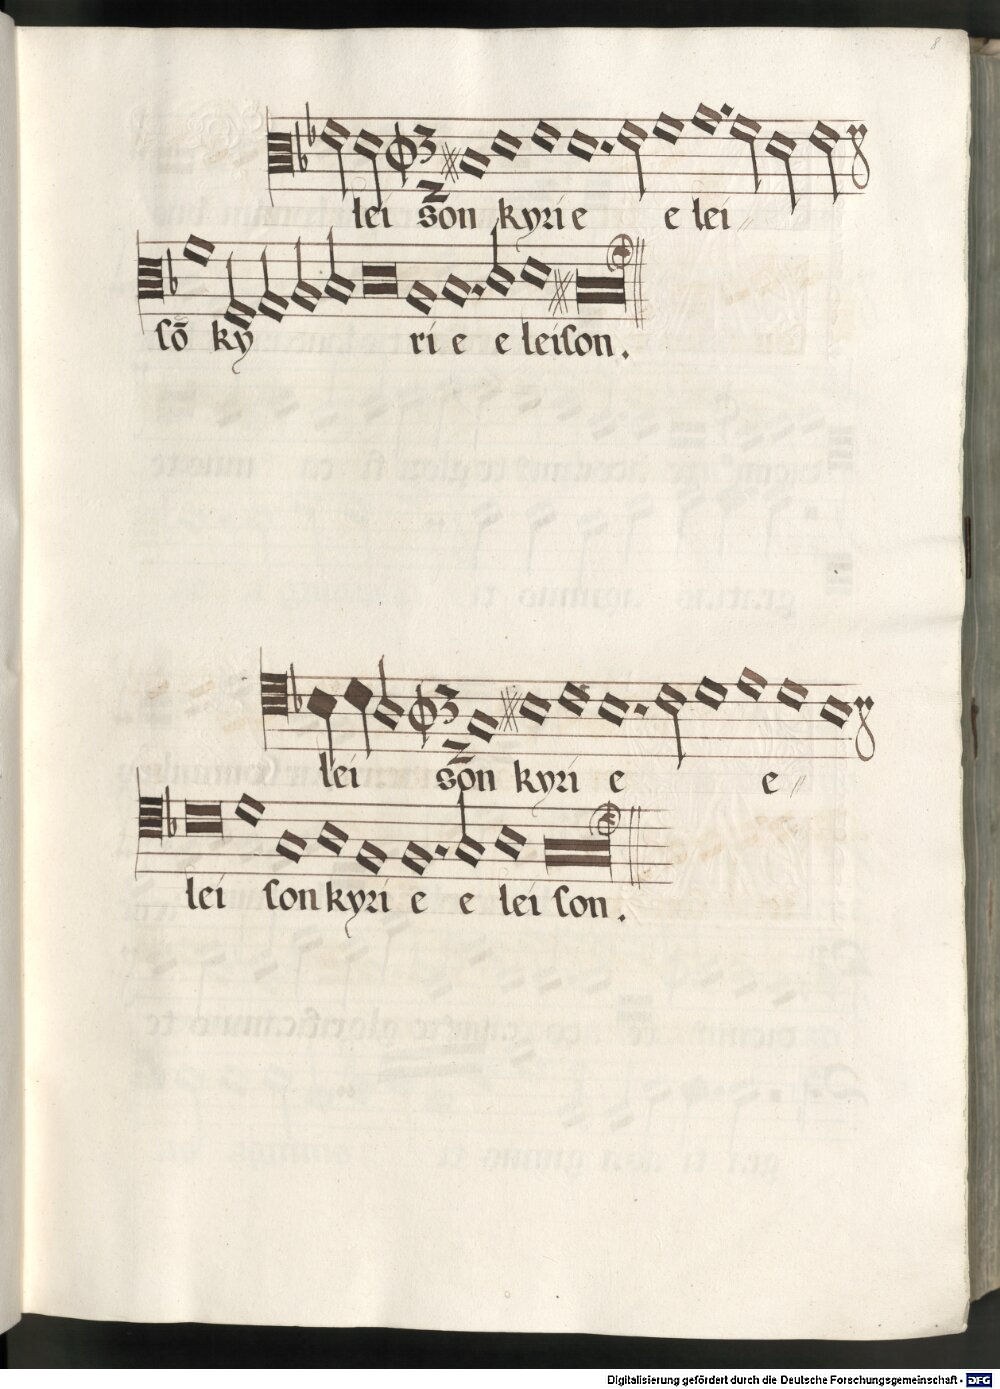 8
lei son kyri e e lei
sō ky ri e e leison.
lei son kyri e e
lei son kyri e e lei son.
Digitalisierung gefördert durch die Deutsche Forschungsgemeinschaft - DFG